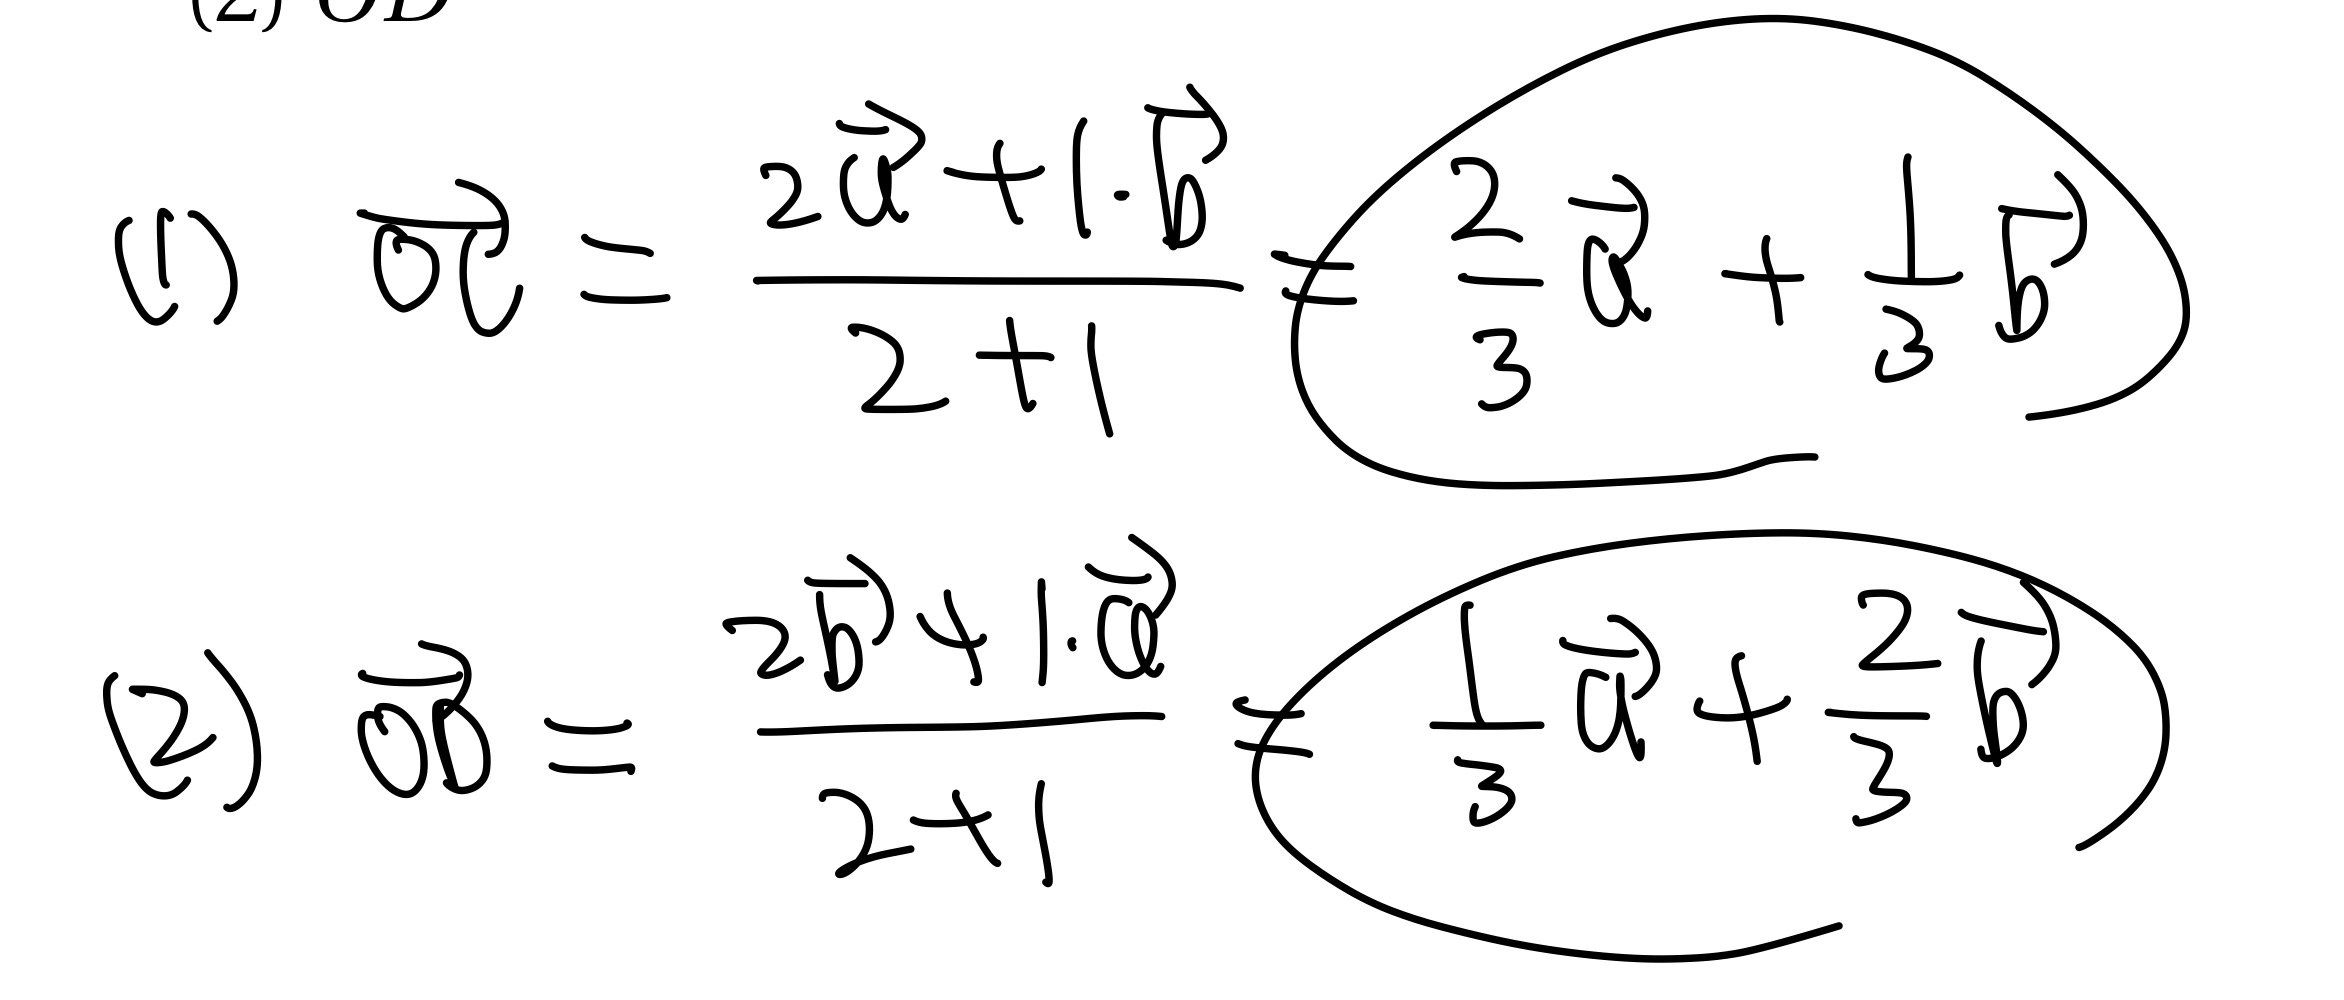 (2) OD
(1) \overrightarrow{OC} = \frac{2\vec{a}+1\cdot\vec{b}}{2+1} = \frac{2}{3}\vec{a} + \frac{1}{3}\vec{b}
(2) \overrightarrow{OD} = \frac{2\vec{b}+1\cdot\vec{a}}{2+1} = \frac{1}{3}\vec{a} + \frac{2}{3}\vec{b}